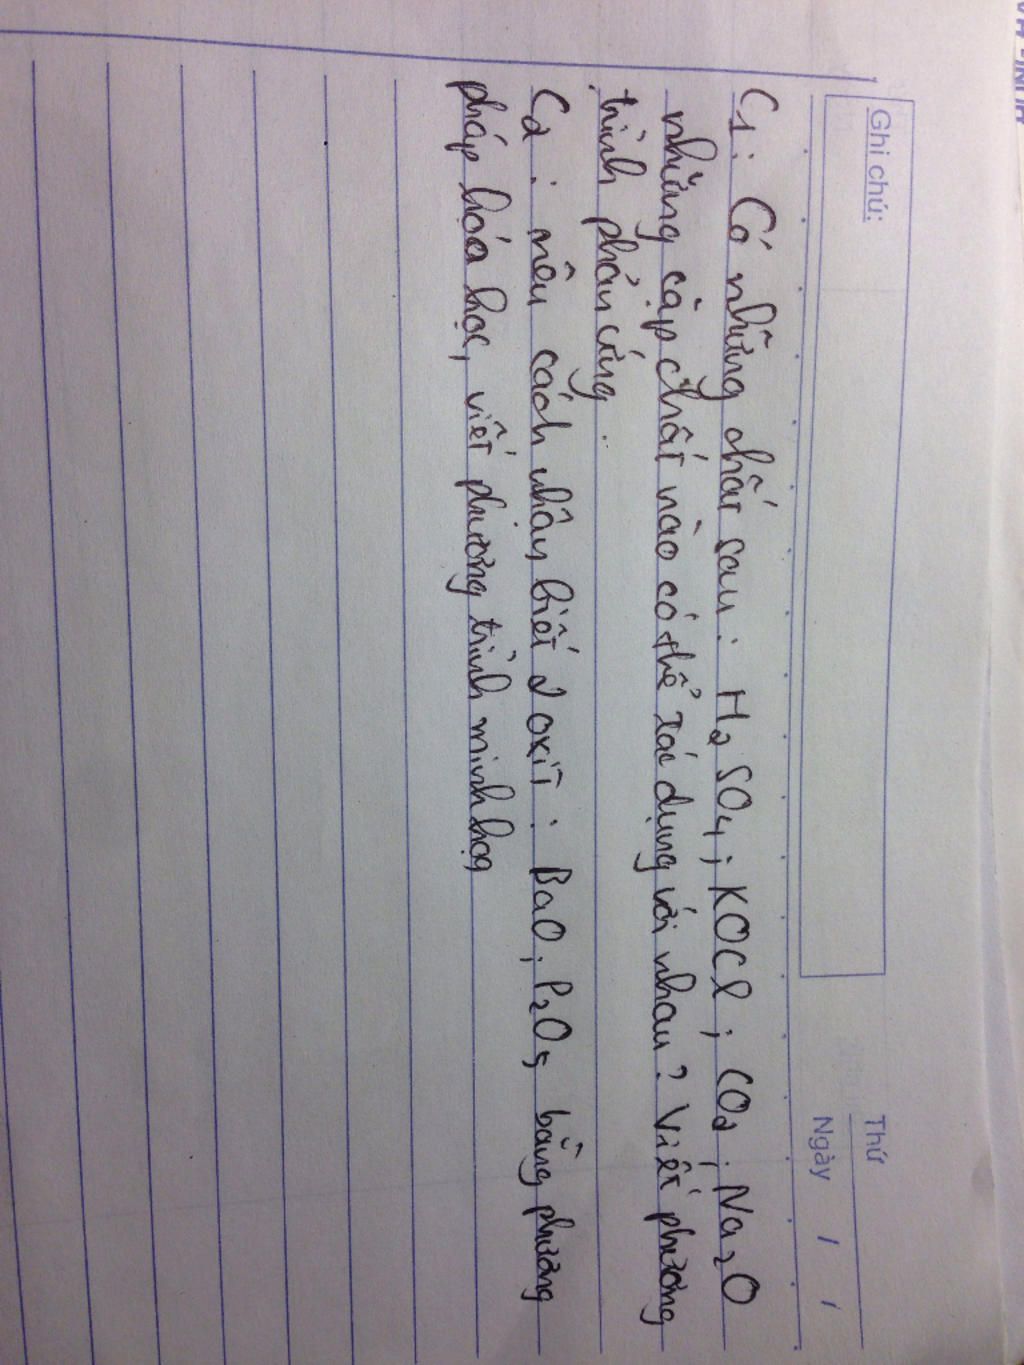 Ghi chú:
Thứ
Ngày / /
C1: Có những chất sau: H2SO4; KOCl; CO2; Na2O
những cặp chất nào có thể tác dụng với nhau? Viết phương
trình phản ứng.
C2: nêu cách nhân biết 2 oxit: BaO; P2O5 bằng phương
pháp hóa học, viết phương trình minh họa